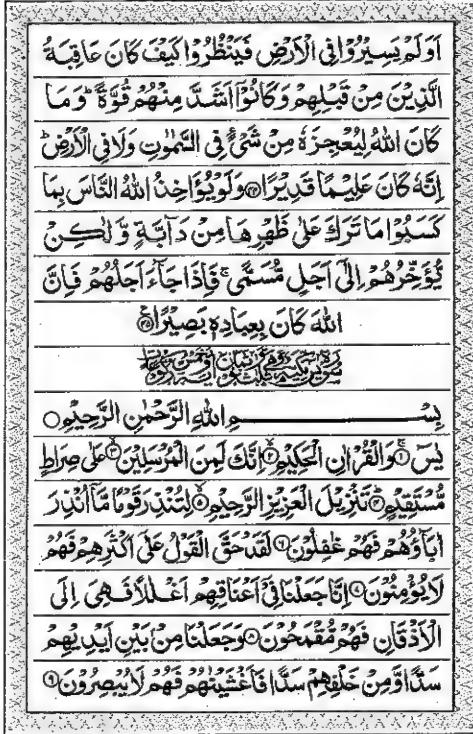 اَوَلَمْ يَسِيْرُوْا فِي الْاَرْضِ فَيَنْظُرُوْا كَيْفَ كَانَ عَاقِبَةُ
الَّذِيْنَ مِنْ قَبْلِهِمْ وَكَانُوْۤا اَشَدَّ مِنْهُمْ قُوَّةً ؕ وَمَا
كَانَ اللّٰهُ لِيُعْجِزَهٗ مِنْ شَيْءٍ فِي السَّمٰوٰتِ وَلَا فِي الْاَرْضِ ؕ
اِنَّهٗ كَانَ عَلِيْمًا قَدِيْرًا ۝ وَلَوْ يُؤَاخِذُ اللّٰهُ النَّاسَ بِمَا
كَسَبُوْا مَا تَرَكَ عَلٰى ظَهْرِهَا مِنْ دَآبَّةٍ وَّلٰكِنْ
يُّؤَخِّرُهُمْ اِلٰۤى اَجَلٍ مُّسَمًّى ۚ فَاِذَا جَآءَ اَجَلُهُمْ فَاِنَّ
اللّٰهَ كَانَ بِعِبَادِهٖ بَصِيْرًا ۝
بِسْمِ اللّٰهِ الرَّحْمٰنِ الرَّحِيْمِ ۝
يٰسٓ ۝۱ وَالْقُرْاٰنِ الْحَكِيْمِ ۝۲ اِنَّكَ لَمِنَ الْمُرْسَلِيْنَ ۝۳ عَلٰى صِرَاطٍ
مُّسْتَقِيْمٍ ۝۴ تَنْزِيْلَ الْعَزِيْزِ الرَّحِيْمِ ۝۵ لِتُنْذِرَ قَوْمًا مَّاۤ اُنْذِرَ
اٰبَآؤُهُمْ فَهُمْ غٰفِلُوْنَ ۝۶ لَقَدْ حَقَّ الْقَوْلُ عَلٰۤى اَكْثَرِهِمْ فَهُمْ
لَا يُؤْمِنُوْنَ ۝۷ اِنَّا جَعَلْنَا فِيْۤ اَعْنَاقِهِمْ اَغْلٰلًا فَهِيَ اِلَى
الْاَذْقَانِ فَهُمْ مُّقْمَحُوْنَ ۝۸ وَجَعَلْنَا مِنْۢ بَيْنِ اَيْدِيْهِمْ
سَدًّا وَّمِنْ خَلْفِهِمْ سَدًّا فَاَغْشَيْنٰهُمْ فَهُمْ لَا يُبْصِرُوْنَ ۝۹